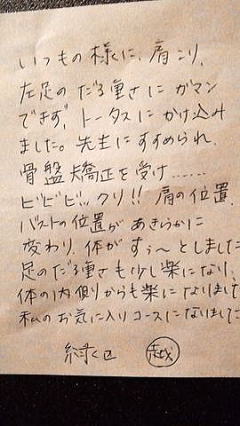 いつもの様に、肩こり、
左足のだる重さにガマン
できず、トータスにかけ込み
ました。先生にすすめられ、
骨盤矯正を受け……
ビビビッックリ!! 肩の位置、
バストの位置があきらかに
変わり、体がすぅ〜としました
足のだる重さも少し楽になり、
体の内側からも楽になりました
私のお気に入りコースになりました
緑区